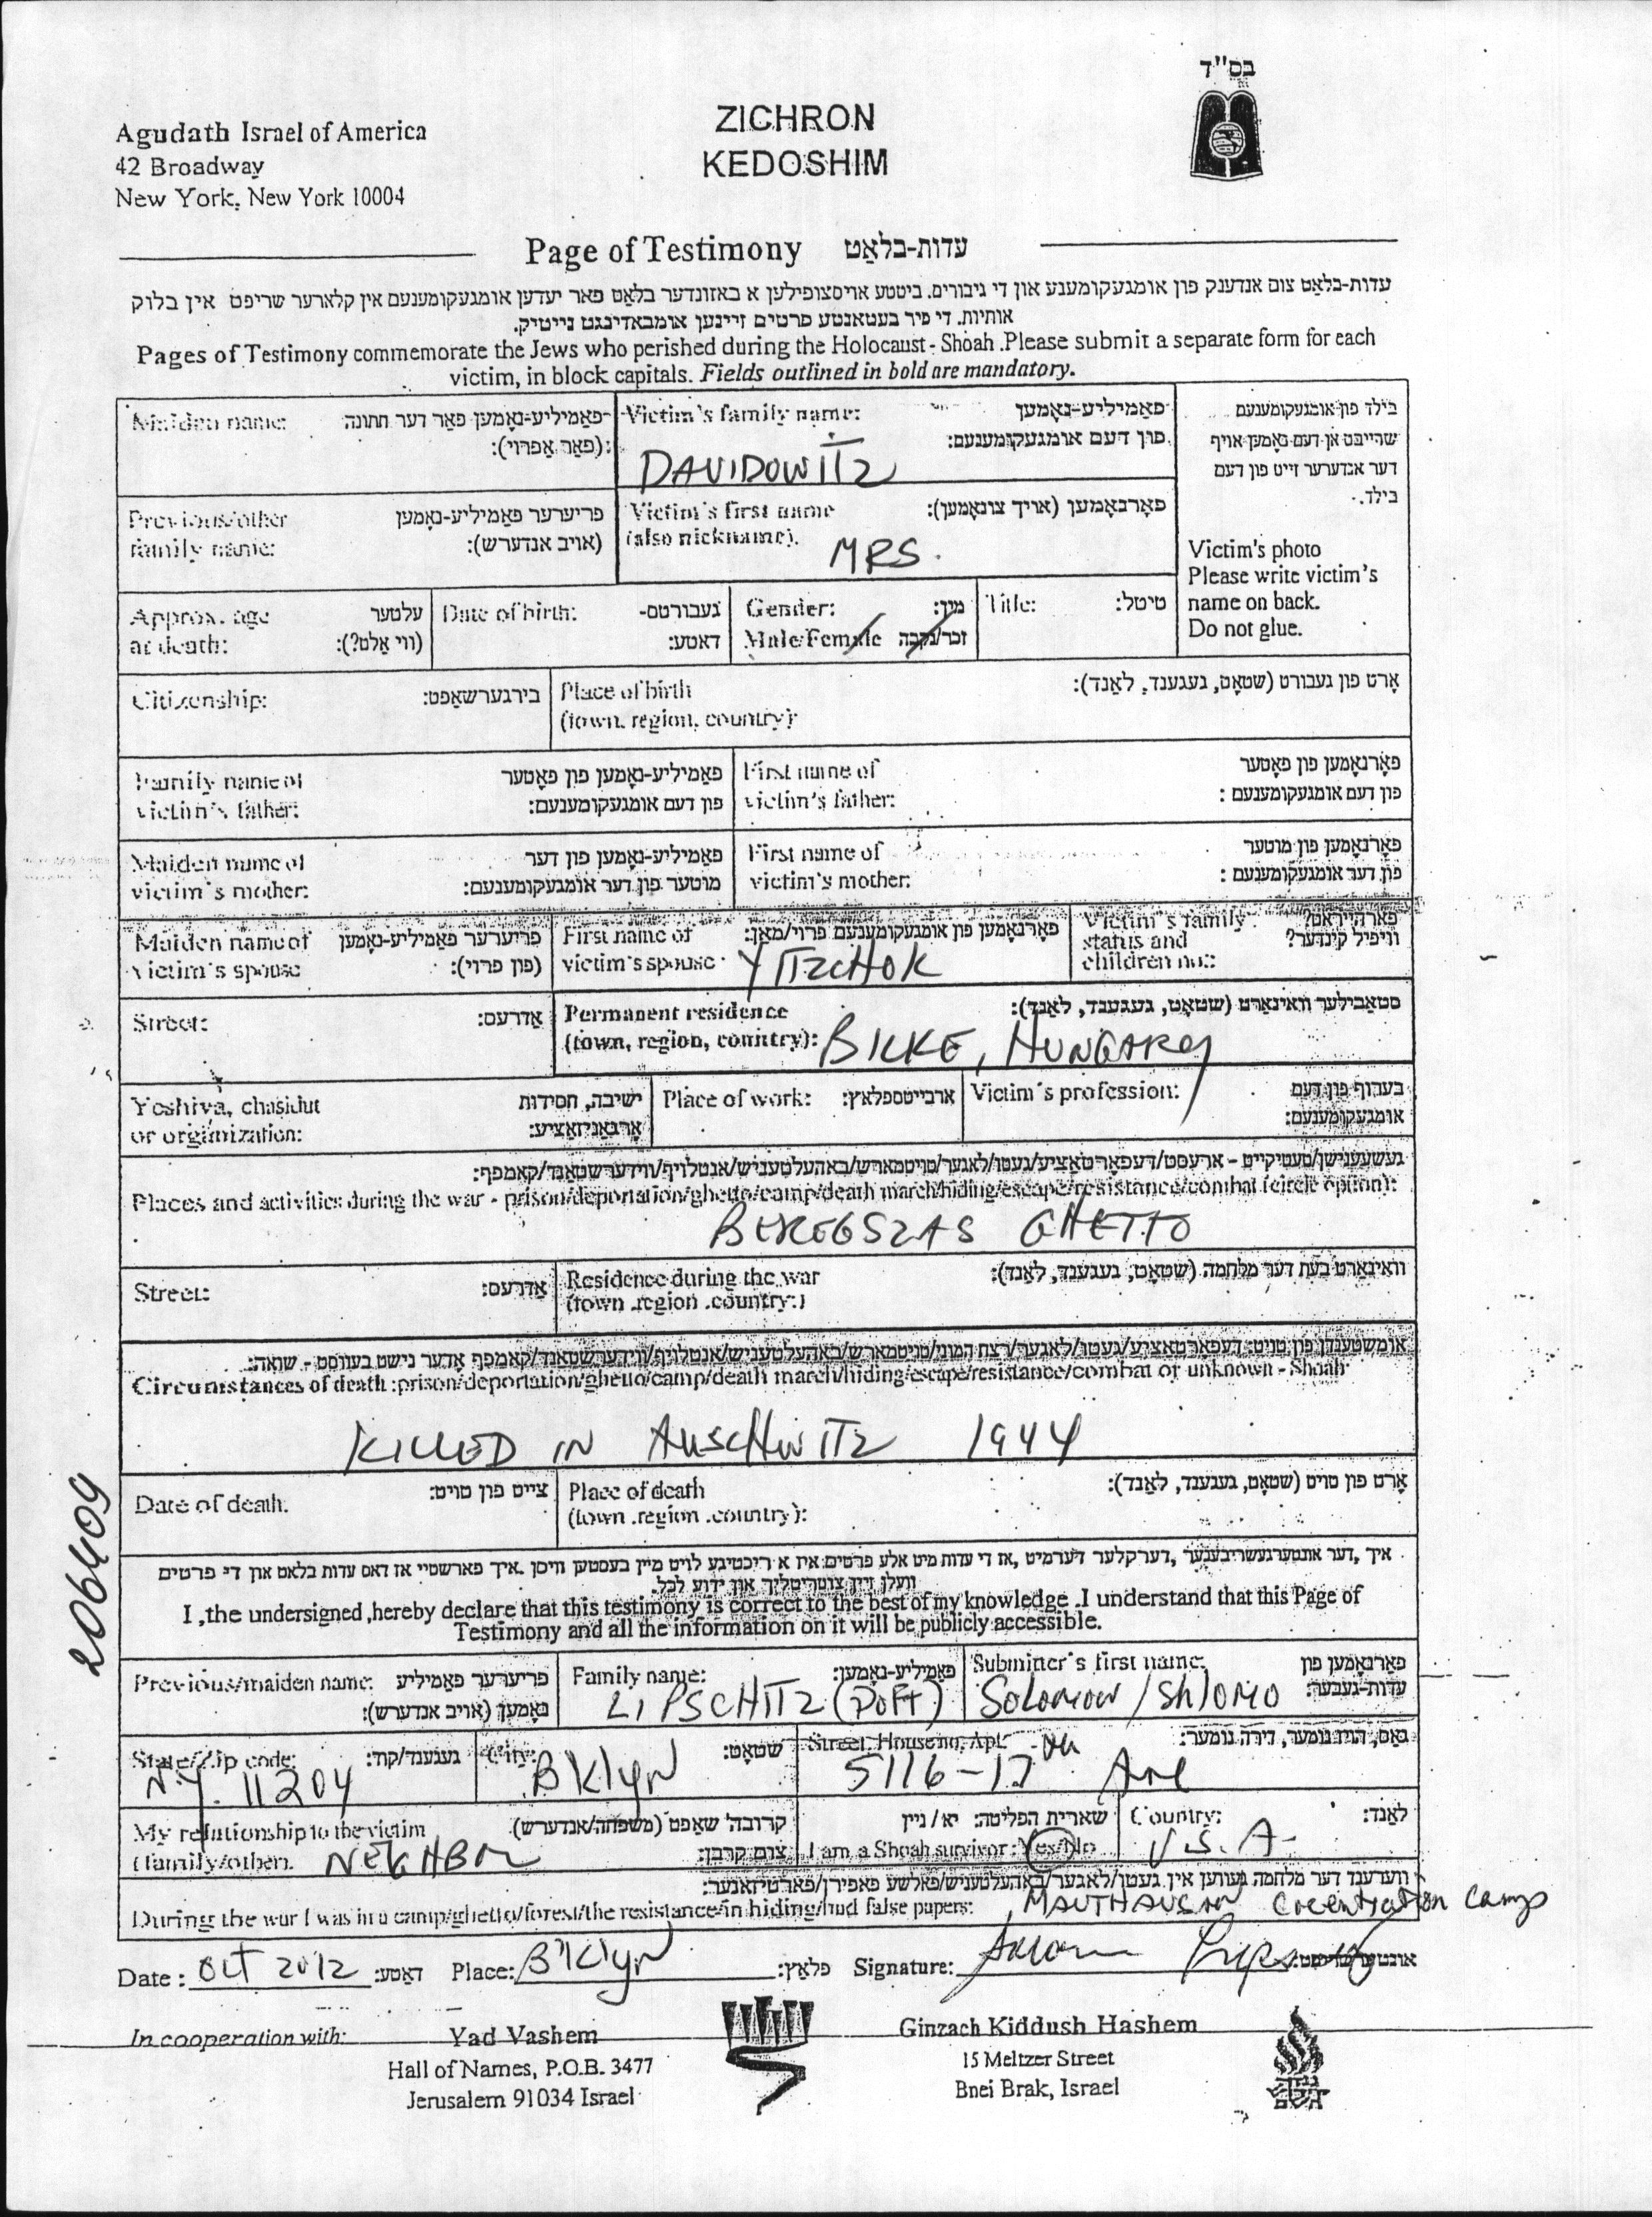 בס"ד
Agudath Israel of America
42 Broadway
New York, New York 10004
ZICHRON
KEDOSHIM
Page of Testimony עדות-בלאַט
עדות-בלאַט צום אנדענק פון אומגעקומענע און די גיבורים. ביטע אויסצופילן א באזונדער בלאַט פאר יעדען אומגעקומענעם אין קלארער שריפט אין בלוק
אותיות. די פיר בעטאנטע פרטים זיינען אומבאדינגט נייטיק.
Pages of Testimony commemorate the Jews who perished during the Holocaust - Shoah .Please submit a separate form for each
victim, in block capitals. Fields outlined in bold are mandatory.
Maiden name: פאַמיליע-נאָמען פאַר דער חתונה
(פאַר אַפרוי):
Victim's family name: פאַמיליע-נאָמען
פון דעם אומגעקומענעם:
DAVIDOWITZ
בילד פון אומגעקומענעם
שרייבט אן דעם נאָמען אויף
דער אנדערער זייט פון דעם
בילד.
Previous/other פריערער פאַמיליע-נאָמען
family name: (אויב אנדערש):
Victim's first name פאָרנאָמען (אויך צונאָמען):
(also nickname).
MRS.
Victim's photo
Please write victim's
name on back.
Do not glue.
Approx. age עלטער
at death: (ווי אַלט?):
Date of birth: געבורטס-
דאטע:
Gender: מין:
Male/Female זכר/נקבה
Title: טיטל:
Citizenship: בירגערשאַפט:
Place of birth אָרט פון געבורט (שטאָט, געגענד, לאַנד):
(town, region, country):
Family name of פאַמיליע-נאָמען פון פאָטער
victim's father: פון דעם אומגעקומענעם:
First name of פאָרנאָמען פון פאָטער
victim's father: פון דעם אומגעקומענעם :
Maiden name of פאַמיליע-נאָמען פון דער
victim's mother: מוטער פון דער אומגעקומענעם:
First name of פאָרנאָמען פון מוטער
victim's mother: פון דער אומגעקומענעם :
Maiden name of פריערער פאַמיליע-נאָמען
victim's spouse (פון פרוי):
First name of פאָרנאָמען פון אומגעקומענעם פרוי/מאַן:
victim's spouse YITZCHOK
Victim's family פארהייראט?
status and וויפיל קינדער?
children no::
Street: אַדרעס:
Permanent residence סטאַבילער וואוינאָרט (שטאָט, געגענד, לאַנד):
(town, region, country): BILKE, HUNGARY
Yeshiva, chasidut ישיבה, חסידות
or organization: אָרגאַניזאַציע:
Place of work: ארבייטספלאץ:
Victim's profession: בערוף פון דעם
אומגעקומענעם:
געשעענישן/טעטיקייט - ארעסט/דעפאָרטאַציע/געטו/לאגער/טויטמארש/באהעלטעניש/אנטלויף/ווידערשטאנד/קאמפף:
Places and activities during the war - prison/deportation/ghetto/camp/death march/hiding/escape/resistance/combat (circle option):
BEREGSZAS GHETTO
Street: אַדרעס:
Residence during the war וואוינאָרט בעת דער מלחמה (שטאָט, געגענד, לאַנד):
(town .region .country:)
אומשטענדן פון טויט: דעפאָרטאַציע/געטו/לאגער/רצח המוני/טויטמארש/באהעלטעניש/אנטלויף/ווידערשטאנד/קאמפף אָדער נישט בעוואוסט - שואה:
Circumstances of death :prison/deportation/ghetto/camp/death march/hiding/escape/resistance/combat or unknown - Shoah
KILLED IN AUSCHWITZ 1944
206409
Date of death: צייט פון טויט:
Place of death אָרט פון טויט (שטאָט, געגענד, לאַנד):
(town .region .country):
איך ,דער אונטערגעשריבענער ,דערקלער דערמיט ,אז די עדות מיט אלע פרטים איז א ריכטיגע לויט מיין בעסטען וויסן .איך פארשטיי אז דאס עדות בלאט און די פרטים
וועלן זיין צוטריטליך און ידוע לכל.
I ,the undersigned ,hereby declare that this testimony is correct to the best of my knowledge .I understand that this Page of
Testimony and all the information on it will be publicly accessible.
Previous/maiden name: פריערער פאַמיליע
נאָמען (אויב אנדערש):
Family name: פאַמיליע-נאָמען:
LIPSCHITZ (DOFT)
Submitter's first name: פאָרנאָמען פון
עדות-געבער:
SOLOMON / ShlOMO
State/Zip code: געגענד/קוד:
N.Y. 11204
City: שטאָט:
BKlyN
Street, House no, Apt גאַס, הויז נומער, דירה נומער:
5116-17 th Ave
My relationship to the victim קרובה' שאַפט (משפחה/אנדערש)
(family/other). צום קרבן:
NEIGHBOR
שארית הפליטה: יא / ניין
I am a Shoah survivor: Yes/No
Country: לאַנד:
U.S.A.
ווערענד דער מלחמה געווען אין געטו/לאגער/באהעלטעניש/פאלשע פאפירן/פארטיזאנער:
During the war I was in a camp/ghetto/forest/the resistance/in hiding/had false papers: MAUTHAUSAN Cocentration Camp
Date : Oct 2012 דאַטע: Place: B'klyn פלאַץ: Signature: אונטערשריפט:
In cooperation with: Yad Vashem
Hall of Names, P.O.B. 3477
Jerusalem 91034 Israel
Ginzach Kiddush Hashem
15 Meltzer Street
Bnei Brak, Israel